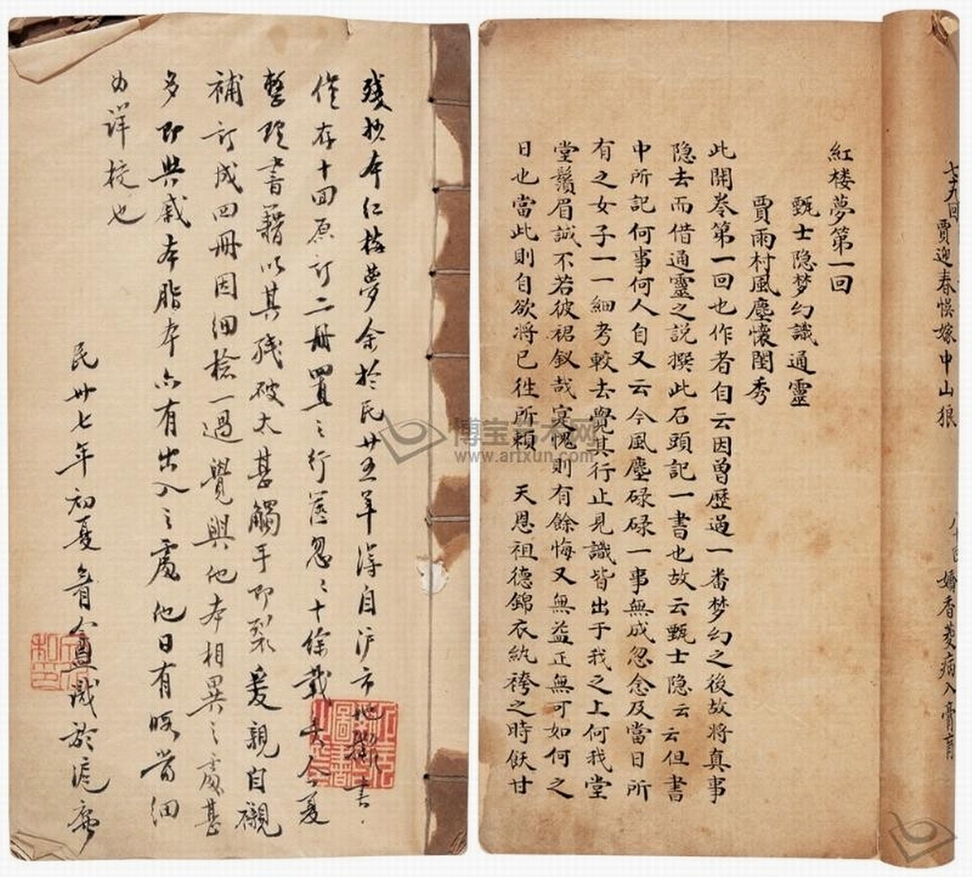 七九回 賈迎春悞嫁中山狼
八十回 嬌香菱病入膏肓
紅楼夢第一回
甄士隐梦幻識通靈
賈雨村風塵懷閨秀
此開卷第一回也作者自云因曾歷過一番梦幻之後故將真事
隐去而借通靈之説撰此石頭記一書也故云甄士隐云云但書
中所記何事何人自又云今風塵碌碌一事無成忽念及當日所
有之女子一一細考較去覺其行止見識皆出于我之上何我堂
堂鬚眉誠不若彼裙釵哉寔愧則有餘悔又無益正無可如何之
日也當此則自欲將已徃所頼 天恩祖德錦衣紈袴之時飫甘
残抄本红楼夢余於民廿五年得自沪市地攤書
僅存十回原訂二册置之行篋忽〻十餘載矣今夏
整理書籍以其残破太甚觸手即裂爰親自襯
補訂成四册因細檢一過覺與他本相異之處甚
多即與戚本脂本亦有出入之處他日有暇當細
为詳校也
民卅七年初夏眉盦識於滬寓
博宝艺术网
www.artxun.com